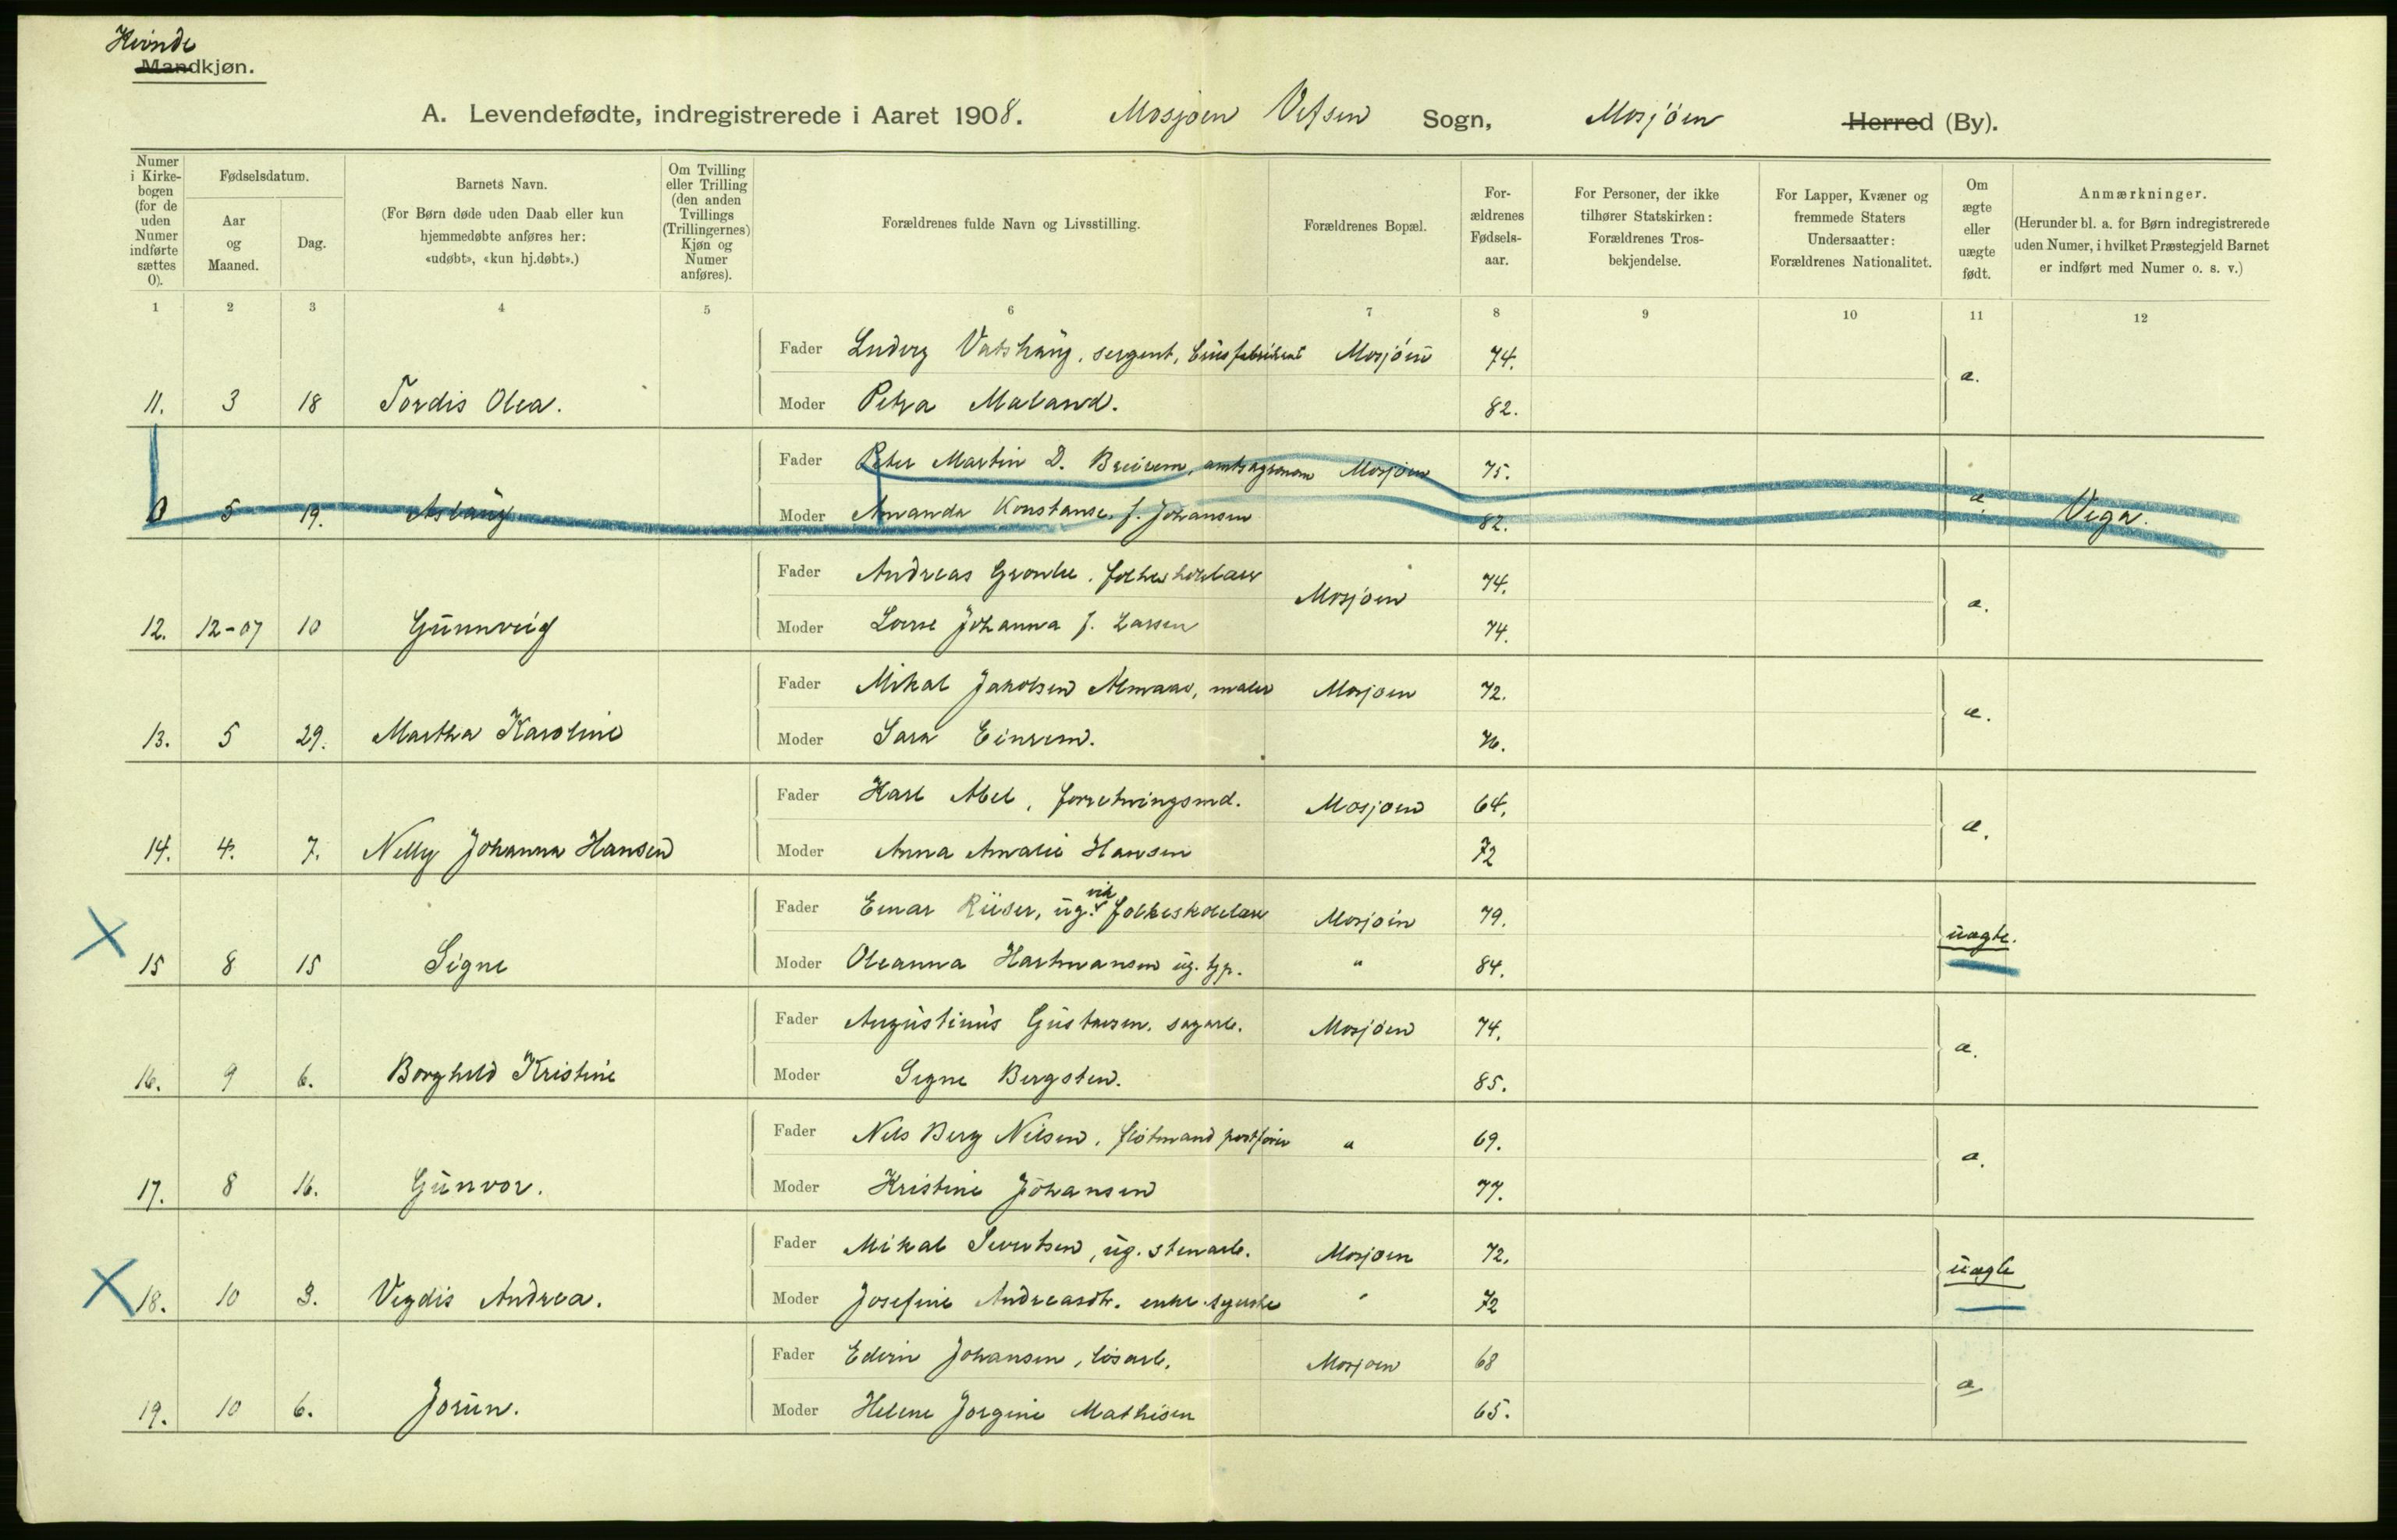 Kvinde
Mandkjøn.
A. Levendefødte, indregistrerede i Aaret 1908. Mosjøen Vefsen Sogn, Mosjøen Herred (By).
Numer i Kirkebogen (for de uden Numer indførte sættes 0).
Fødselsdatum.
Aar og Maaned.
Dag.
Barnets Navn.
(For Børn døde uden Daab eller kun hjemmedøbte anføres her: «udøbt», «kun hj.døbt».)
Om Tvilling eller Trilling (den anden Tvillings (Trillingernes) Kjøn og Numer anføres).
Forældrenes fulde Navn og Livsstilling.
Forældrenes Bopæl.
Forældrenes Fødselsaar.
For Personer, der ikke tilhører Statskirken: Forældrenes Trosbekjendelse.
For Lapper, Kvæner og fremmede Staters Undersaatter: Forældrenes Nationalitet.
Om ægte eller uægte født.
Anmærkninger.
(Herunder bl. a. for Børn indregistrerede uden Numer, i hvilket Præstegjeld Barnet er indført med Numer o. s. v.)
1 2 3 4 5 6 7 8 9 10 11 12
Fader Ludvig Vatshaug, sergent, brusfabrikant Mosjøen 74.
11. 3 18 Tordis Olea. Moder Petra Maland. 82. æ.
Fader Peter Martin D. Breivem, amtsagronom Mosjøen 75.
0 5 19. Aslaug Moder Amanda Konstanse f. Johansen 82. æ. Vega.
Fader Andreas Gronbe, folkeskolelærer Mosjøen 74.
12. 12-07 10 Gunnveig Moder Lovise Johanna f. Larsen 74. æ.
Fader Mikal Jakobsen Almaas, maler Mosjøen 72.
13. 5 29. Martha Karoline Moder Sara Einrem. 76. æ.
Fader Karl Abel, forretningsmd. Mosjøen 64.
14. 4. 7. Nelly Johanna Hansen Moder Anna Amalie Hansen 72 æ.
Fader Einar Riiser, ug. vik. folkeskolelærer Mosjøen 79.
15 8 15 Signe Moder Oleanna Hartmansen ug. tjp. " 84. uægte.
Fader Augustinus Gustavsen, sagarb. Mosjøen 74.
16. 9 6. Borghild Kristine Moder Signe Bergsten. 85. æ.
Fader Nils Berg Nilsen, fløtmand postfører " 69.
17. 8 16. Gunvor. Moder Kristine Johansen 77. æ.
Fader Mikal Sivertsen, ug. stenarb. Mosjøen 72.
18. 10 3. Vigdis Andrea. Moder Josefine Andreasdtr. enke syerske " 72 uægte
Fader Edvin Johansen, løsarb. Mosjøen 68
19. 10 6. Jorun. Moder Helene Jorgine Mathisen 65. æ